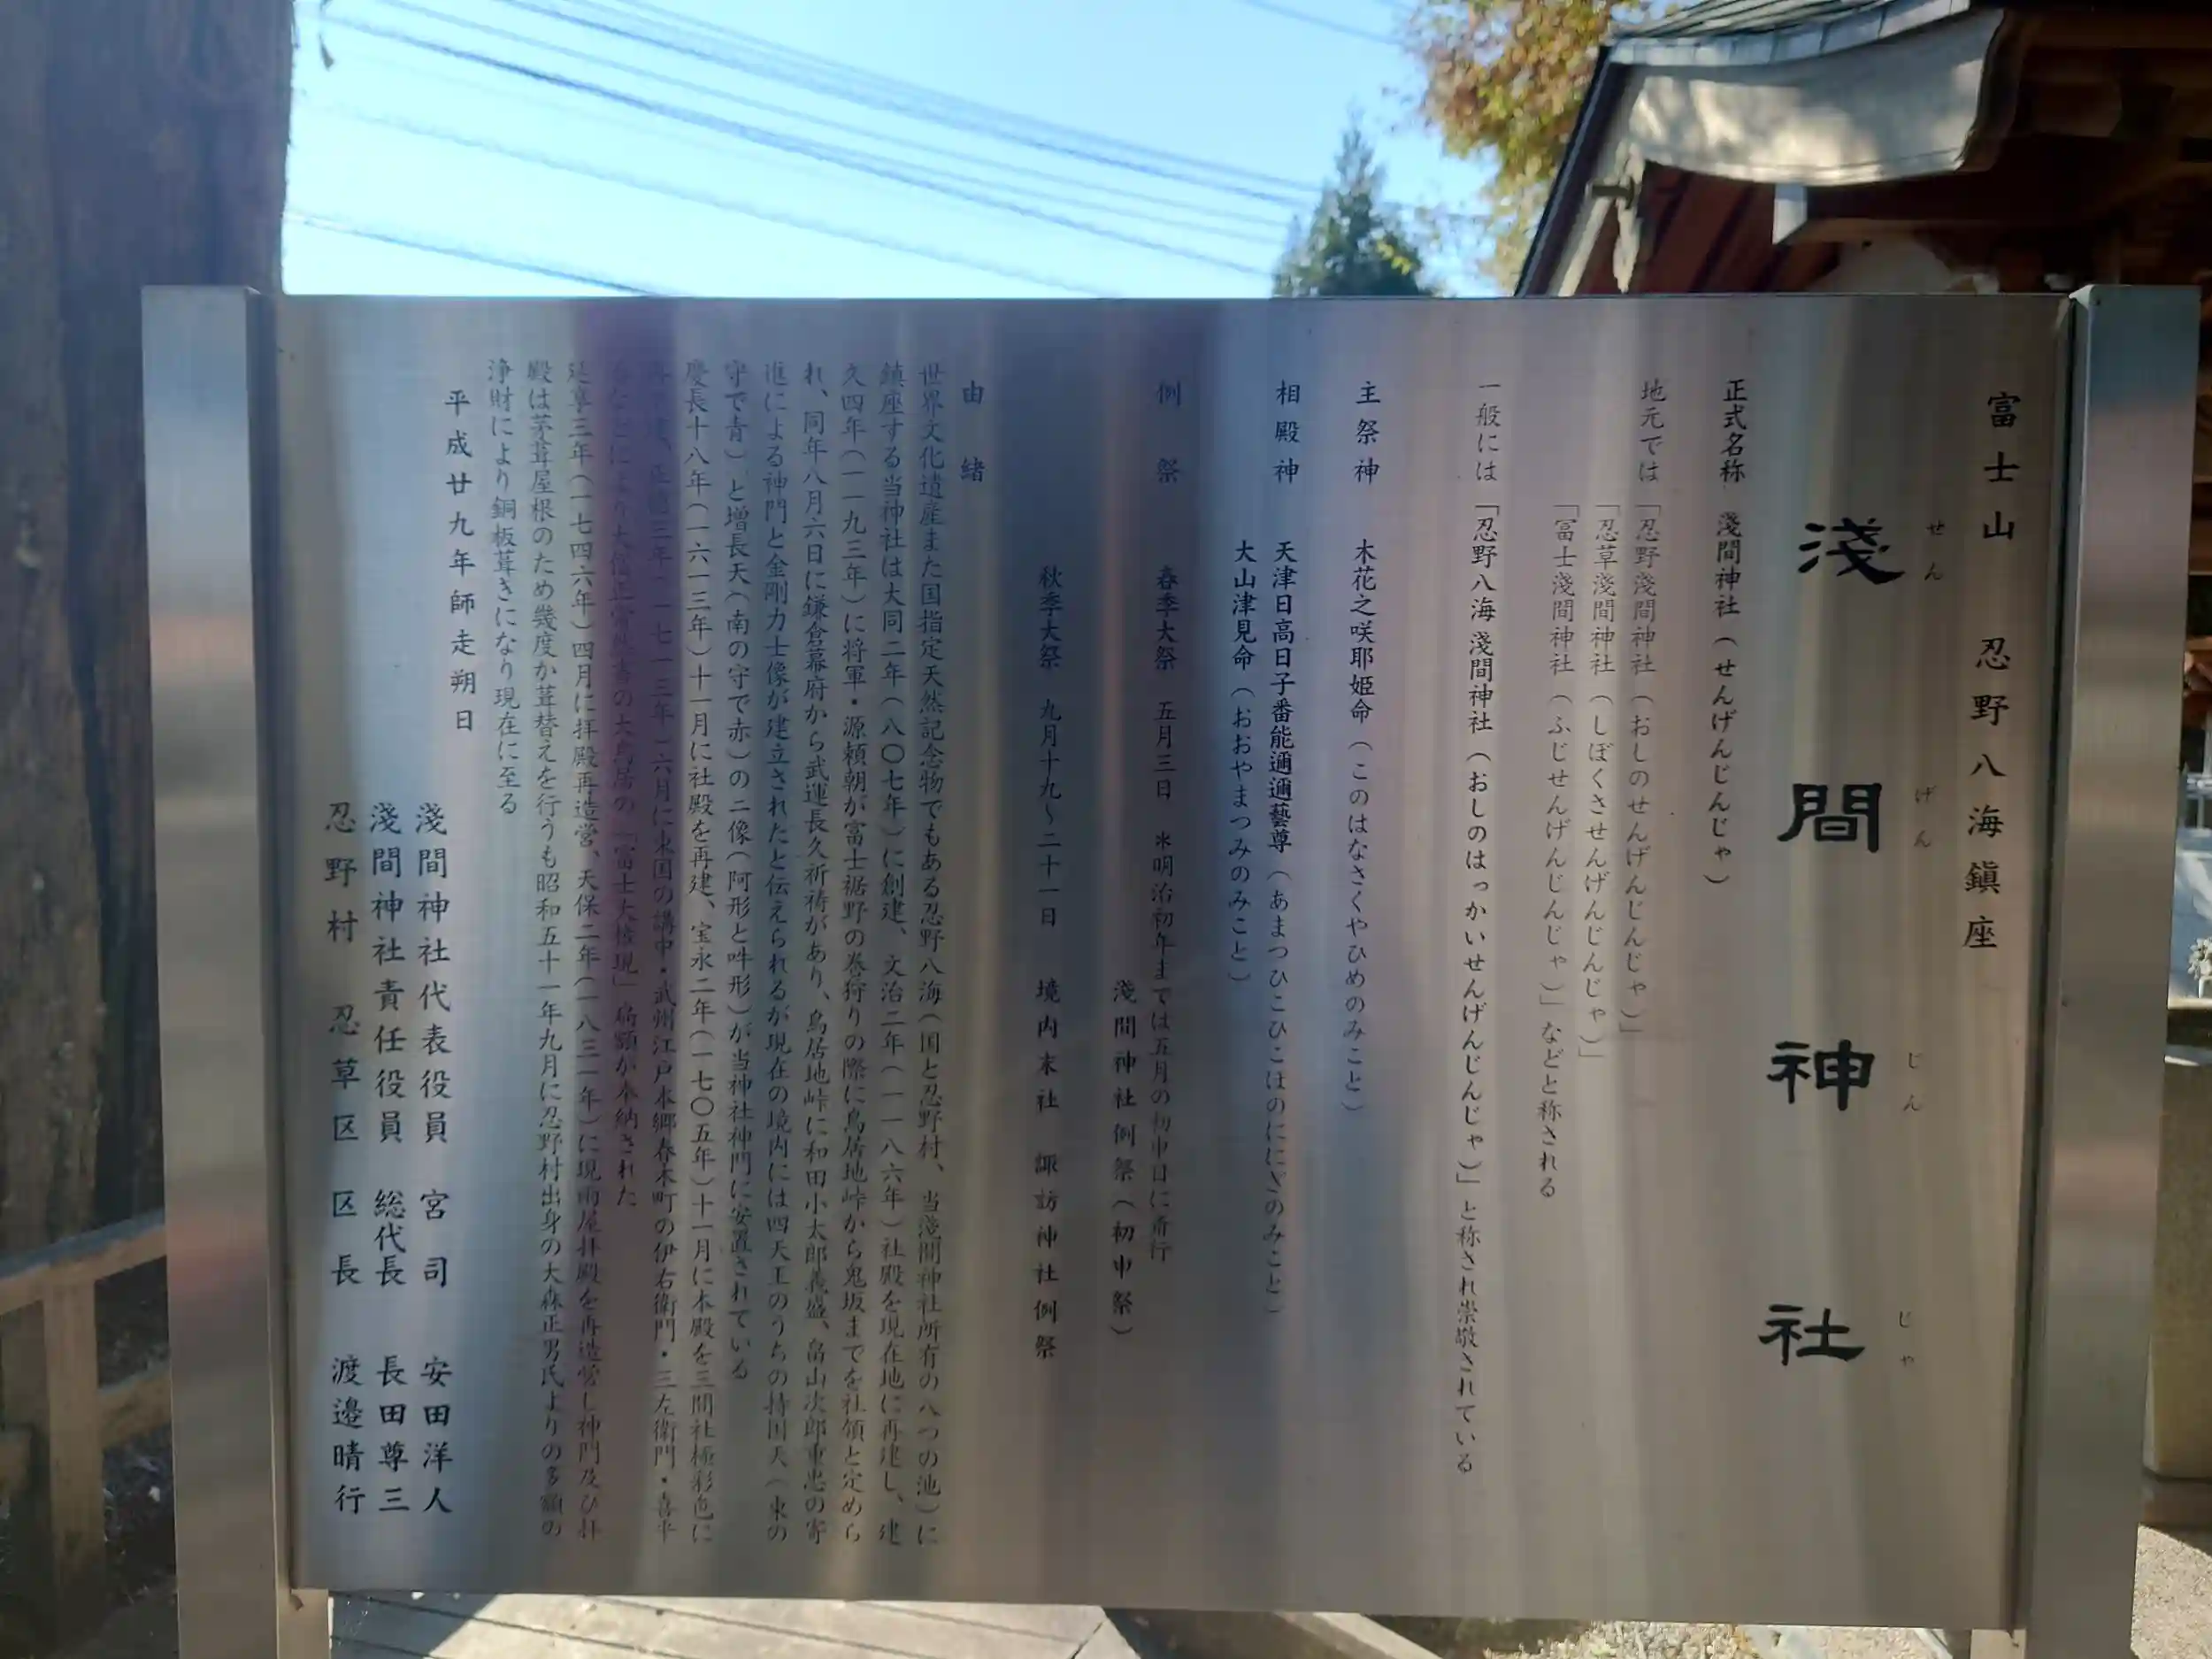 富士山 忍野八海鎮座
淺間神社
せんげんじんじゃ
正式名称 淺間神社(せんげんじんじゃ)
地元では「忍野淺間神社(おしのせんげんじんじゃ)」
「忍草淺間神社(しぼくさせんげんじんじゃ)」
「冨士淺間神社(ふじせんげんじんじゃ)」などと称される
一般には「忍野八海淺間神社(おしのはっかいせんげんじんじゃ)」と称され崇敬されている
主祭神 木花之咲耶姫命(このはなさくやひめのみこと)
相殿神 天津日高日子番能邇邇藝尊(あまつひこひこほのににぎのみこと)
大山津見命(おおやまつみのみこと)
例祭 春季大祭 五月三日 *明治初年までは五月の初申日に斎行
淺間神社例祭(初申祭)
秋季大祭 九月十九~二十一日 境内末社 諏訪神社例祭
由緒
世界文化遺産また国指定天然記念物でもある忍野八海(国と忍野村、当淺間神社所有の八つの池)に
鎮座する当神社は大同二年(八〇七年)に創建、文治二年(一一八六年)社殿を現在地に再建し、建
久四年(一一九三年)に将軍・源頼朝が富士裾野の巻狩りの際に鳥居地峠から鬼坂までを社領と定めら
れ、同年八月六日に鎌倉幕府から武運長久祈祷があり、鳥居地峠に和田小太郎義盛、畠山次郎重忠の寄
進による神門と金剛力士像が建立されたと伝えられるが現在の境内には四天王のうちの持国天(東の
守で青)と増長天(南の守で赤)の二像(阿形と吽形)が当神社神門に安置されている
慶長十八年(一六一三年)十一月に社殿を再建、宝永二年(一七〇五年)十一月に本殿を三間社極彩色に
三年(一七一三年)六月に東国の講中・武州江戸本郷春木町の伊右衛門・三左衛門・喜平
により大僧正 の大鳥居の「富士大権現」扁額が奉納された
延享三年(一七四六年)四月に拝殿再造営、天保二年(一八三一年)に現雨屋拝殿を再造営し神門及び拝
殿は茅葺屋根のため幾度か葺替えを行うも昭和五十一年九月に忍野村出身の大森正男氏よりの多額の
浄財により銅板葺きになり現在に至る
平成廿九年師走朔日
淺間神社代表役員 宮司 安田洋人
淺間神社責任役員 総代長 長田尊三
忍野村 忍草区 区長 渡邉晴行